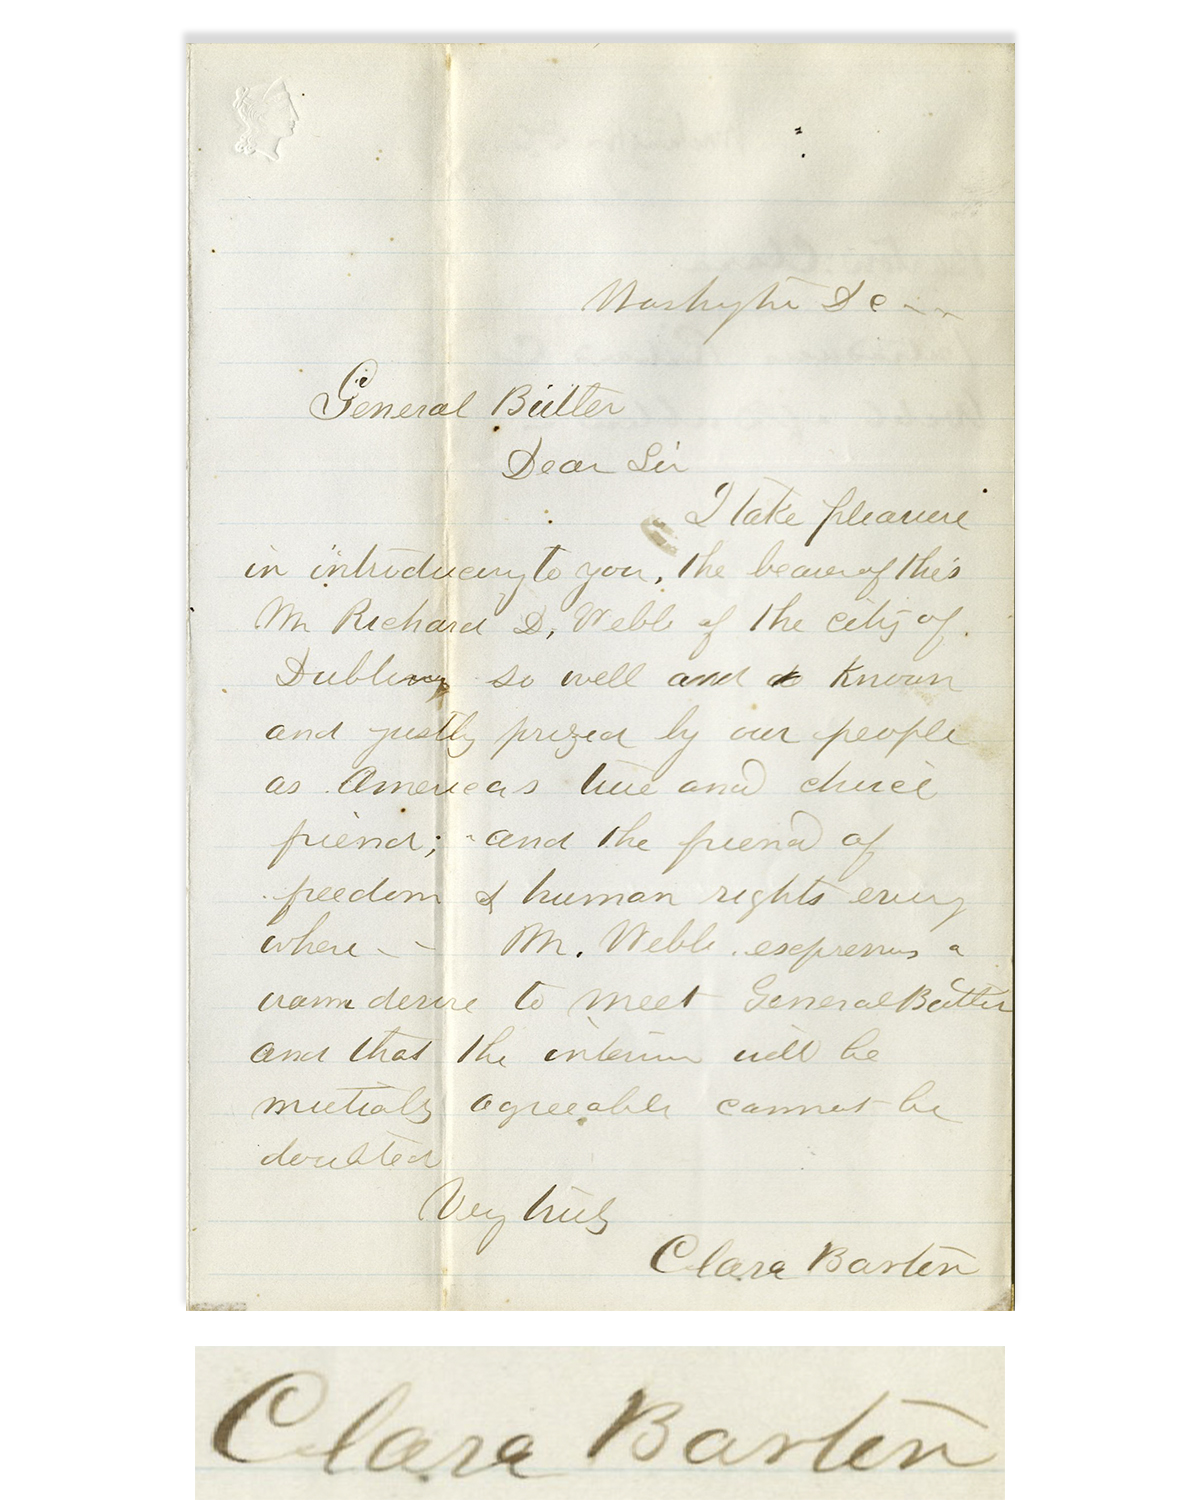 Washington D C
General Butler
Dear Sir
I take pleasure
in introducing to you, the bearer of this
Mr Richard D, Webb of the city of
Dublin so well and known
and justly prized by our people
as Americas true and choice
friend; - and the friend of
freedom & human rights every
where - - Mr. Webb expresses a
warm desire to meet General Butler
and that the interview will be
mutually agreeable cannot be
doubted
Very truly
Clara Barton
Clara Barton